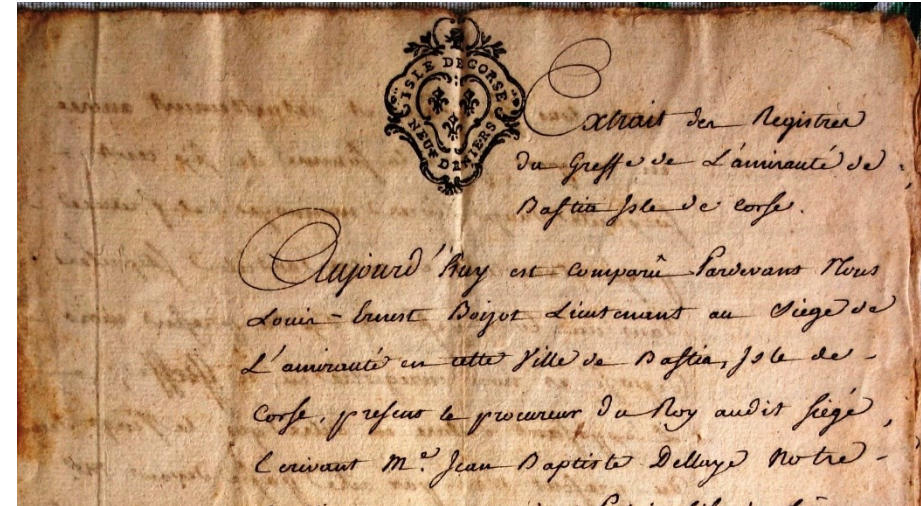 ISLE DE CORSE
NEUF DENIERS
Extrait des Registres
du Greffe de L'amirauté de
Bastia Isle de Corse.
Aujourd'huy est comparû Pardevant Nous
Louis-Ernest Boizot Lieutenant au Siege de
L'amirauté en cette Ville de Bastia, Isle de
Corse, present le procureur du Roy audit siége
Ecrivant M.e Jean Baptiste Notre